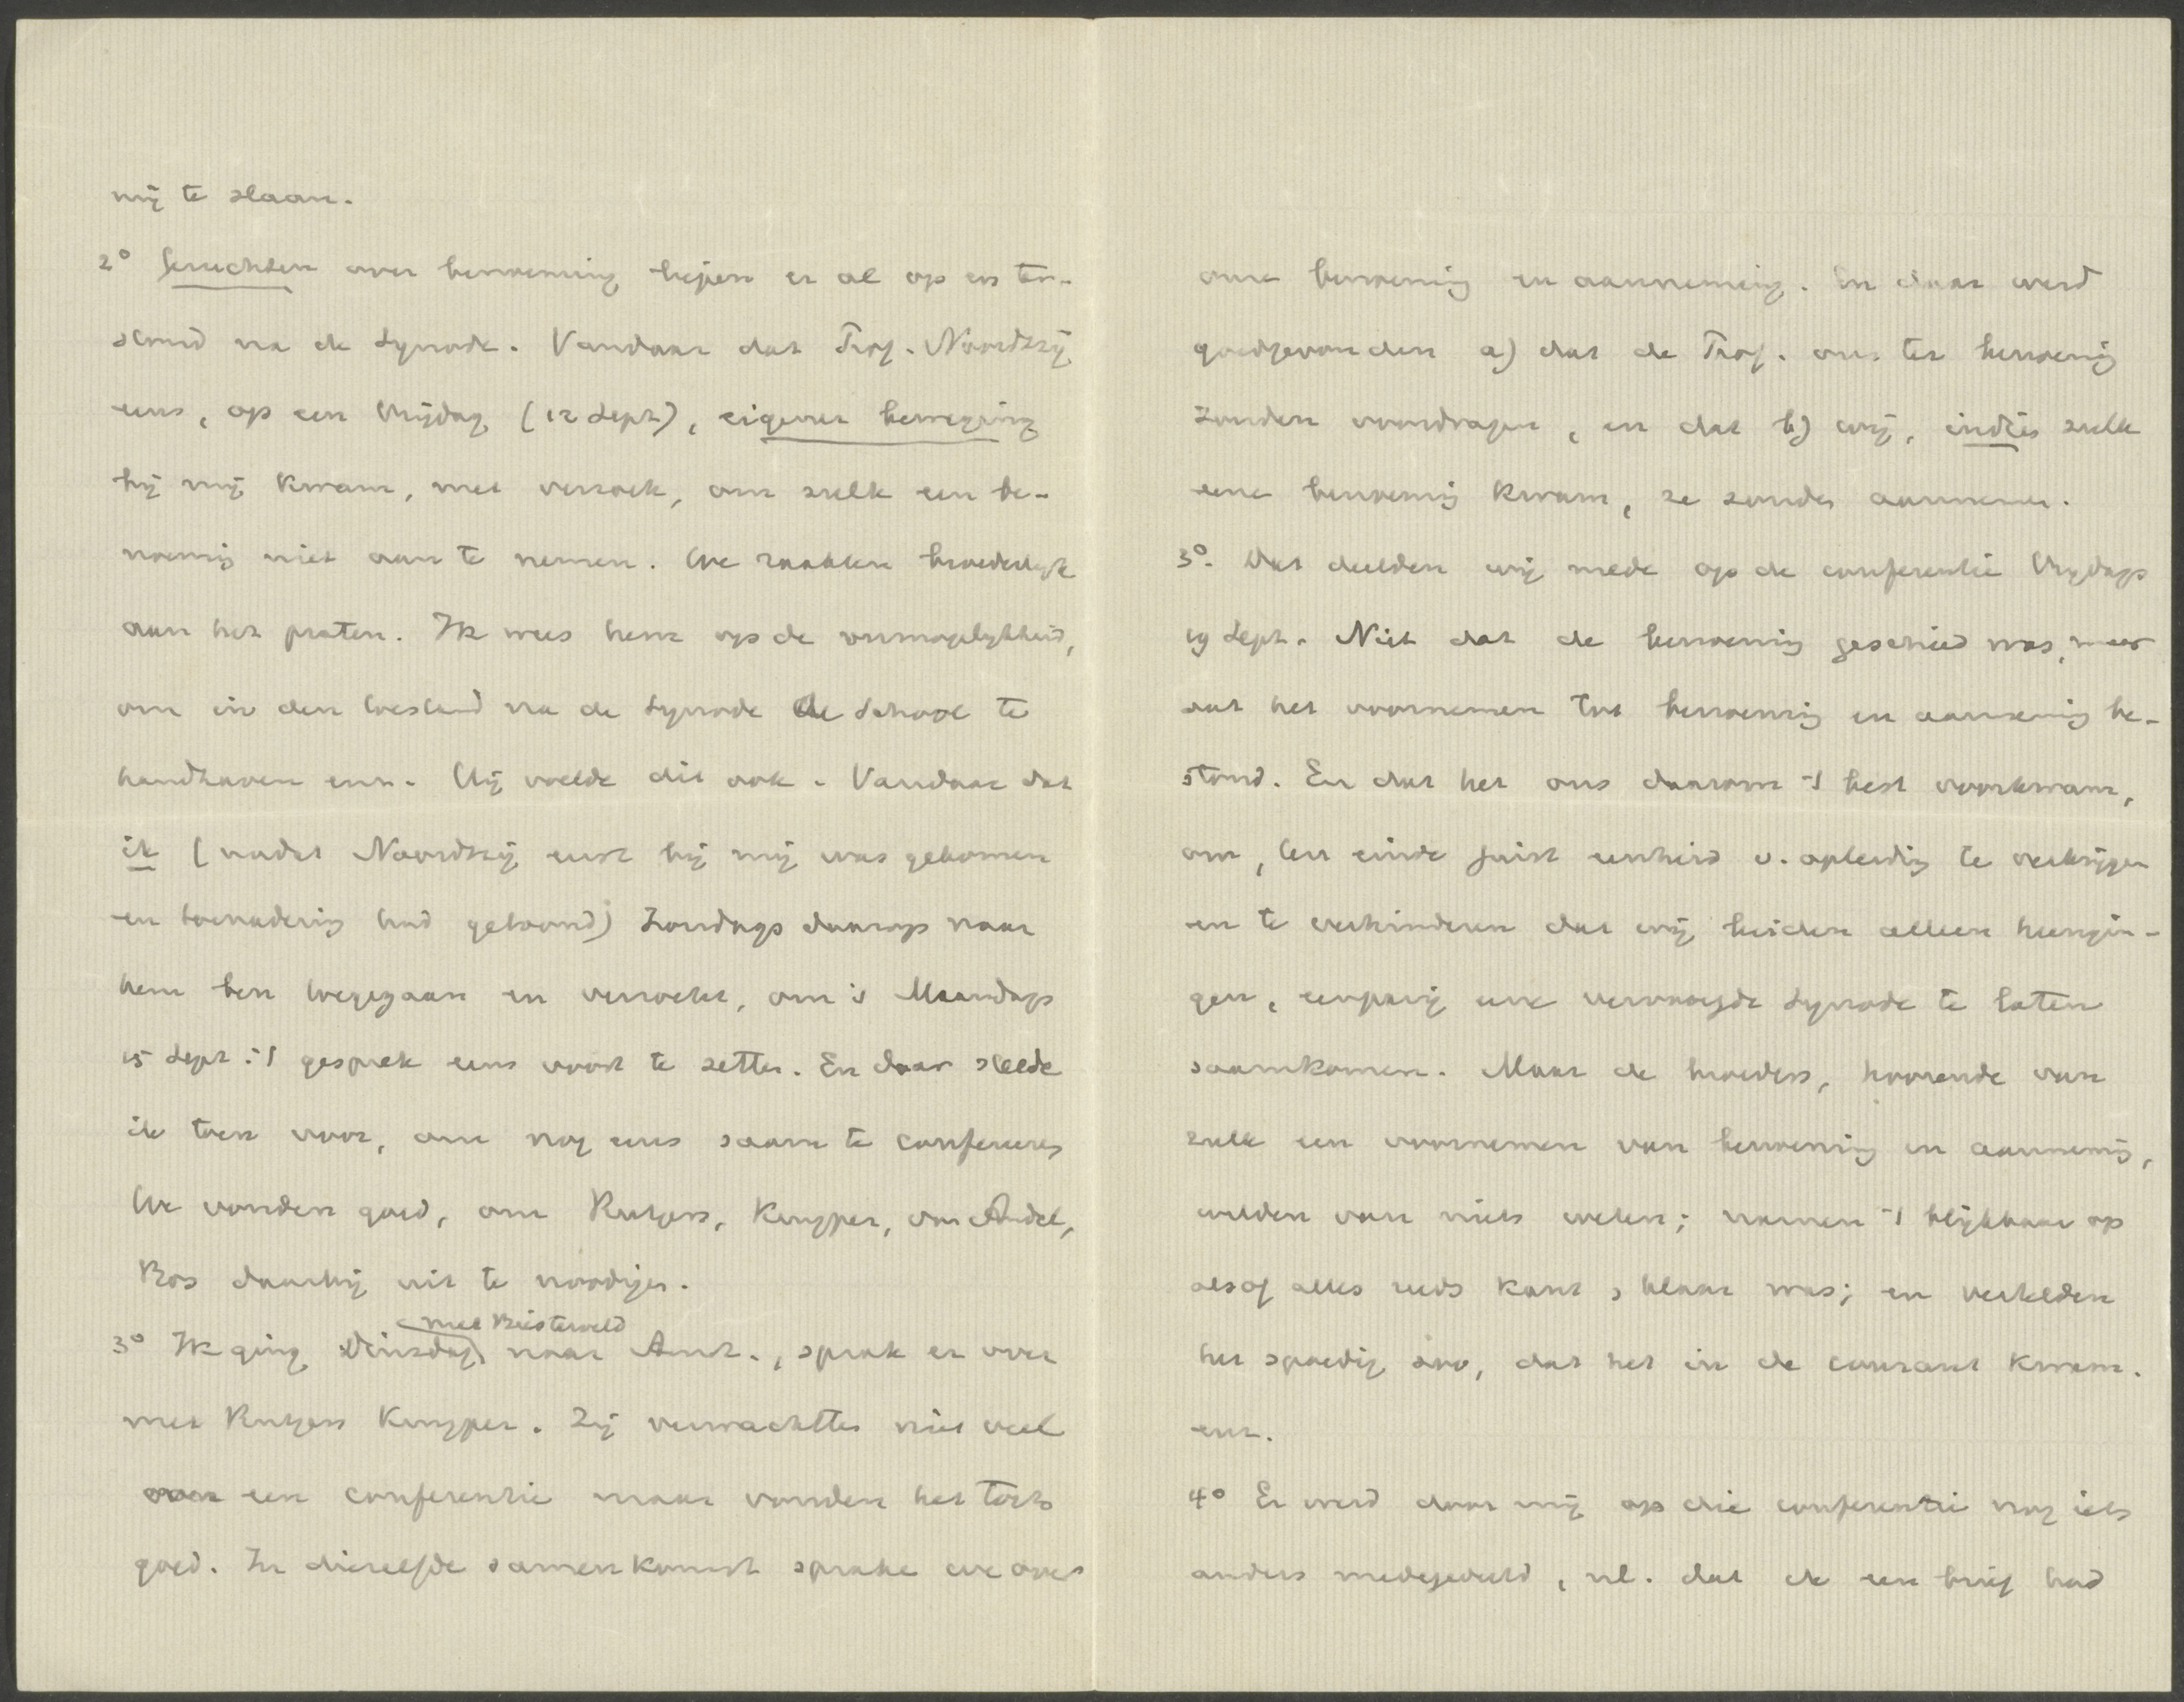 mij te staan.
2° Geruchten over benoeming liepen er al op en ter-
stond na de Synode. Vandaar dat Prof. Noordtzij
eens, op een Vrijdag (12 Sept), eigener beweging
bij mij kwam, met verzoek, om zulk een be-
noeming niet aan te nemen. We raakten broederlijk
aan het praten. Ik wees hem op de onmogelijkheid,
om in den toestand na de Synode de School te
handhaven enz. Hij voelde dit ook. Vandaar dat
ik (nadat Noordtzij eerst bij mij was gekomen
en toenadering had getoond) Zondags daarop naar
hem ben toegegaan en verzocht, om 's Maandags
15 Sept. 't gesprek eens voort te zetten. En daar stelde
ik toen voor, om nog eens saam te confereeren
We vonden goed, om Rutgers, Kuyper, van Andel,
Bos daarbij uit te noodigen.
met Biesterveld
3° Ik ging Dinsdag naar Amst., sprak er over
met Rutgers Kuyper. Zij verwachtten niet veel
van een conferentie maar vonden het toch
goed. In diezelfde samenkomst spraken we over
onze benoeming en aanneming. En daar werd
goedgevonden a) dat de Prof. ons ter benoeming
zouden voordragen, en dat b) wij, indien zulk
eene benoeming kwam, ze zouden aannemen.
3°. Dat deelden wij mede op de conferentie Vrijdags
19 Sept. Niet dat de benoeming geschied was, maar
dat het voornemen tot benoeming en aanneming be-
stond. En dat het ons daarom 't best voorkwam,
om, ten einde juist eenheid v. opleiding te verkrijgen
en te verhinderen dat wij beiden alleen heengin-
gen, eenparig eene vervroegde Synode te laten
saamkomen. Maar de broeders, hoorende van
zulk een voornemen van benoeming en aanneming,
wilden van niets weten; namen 't blijkbaar op
alsof alles reeds kant en klaar was; en vertelden
het spoedig zoo, dat het in de courant kwam.
enz.
4° Er werd door mij op die conferentie nog iets
anders medegedeeld, nl. dat ik een brief had